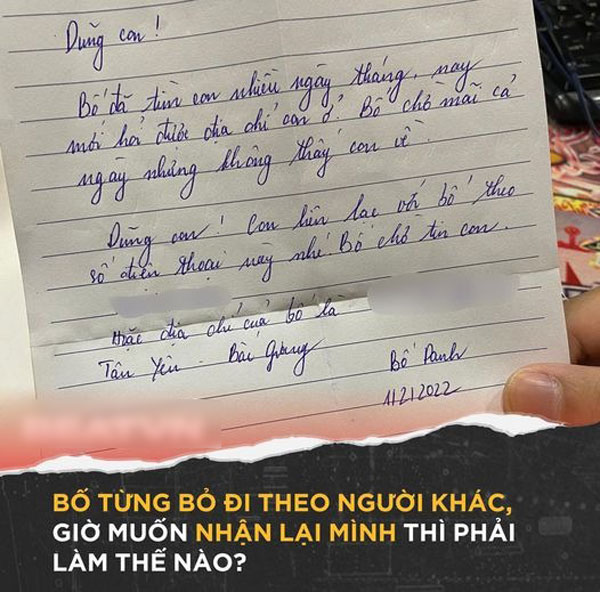 Dũng con!
Bố đã tìm con nhiều ngày tháng, nay
mới hỏi được địa chỉ con ở. Bố chờ mãi cả
ngày nhưng không thấy con về.
Dũng con! Con liên lạc với bố theo
số điện thoại này nhé. Bố chờ tin con.
Hoặc địa chỉ của bố là
Tân Yên - Bắc Giang
Bố Danh
11/2/2022
BỐ TỪNG BỎ ĐI THEO NGƯỜI KHÁC,
GIỜ MUỐN NHẬN LẠI MÌNH THÌ PHẢI
LÀM THẾ NÀO?